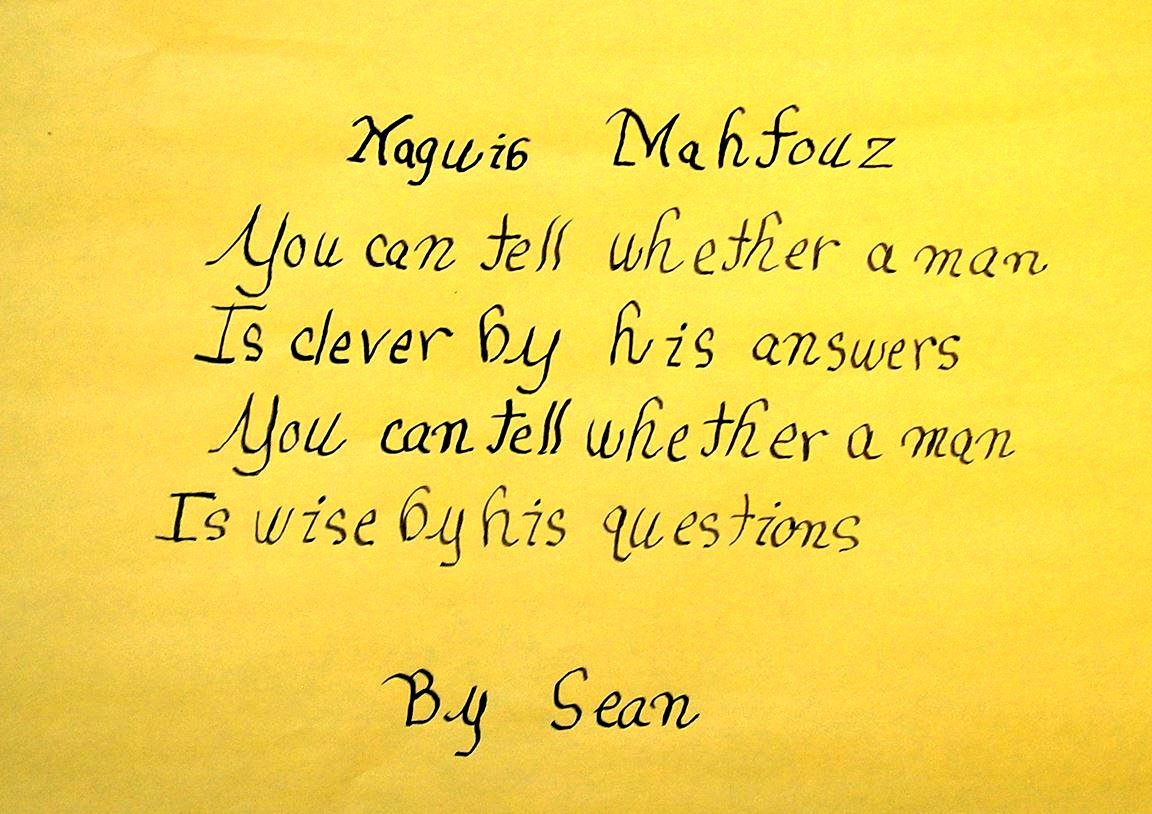 Naguib Mahfouz
You can tell whether a man
Is clever by his answers
You can tell whether a man
Is wise by his questions
By Sean